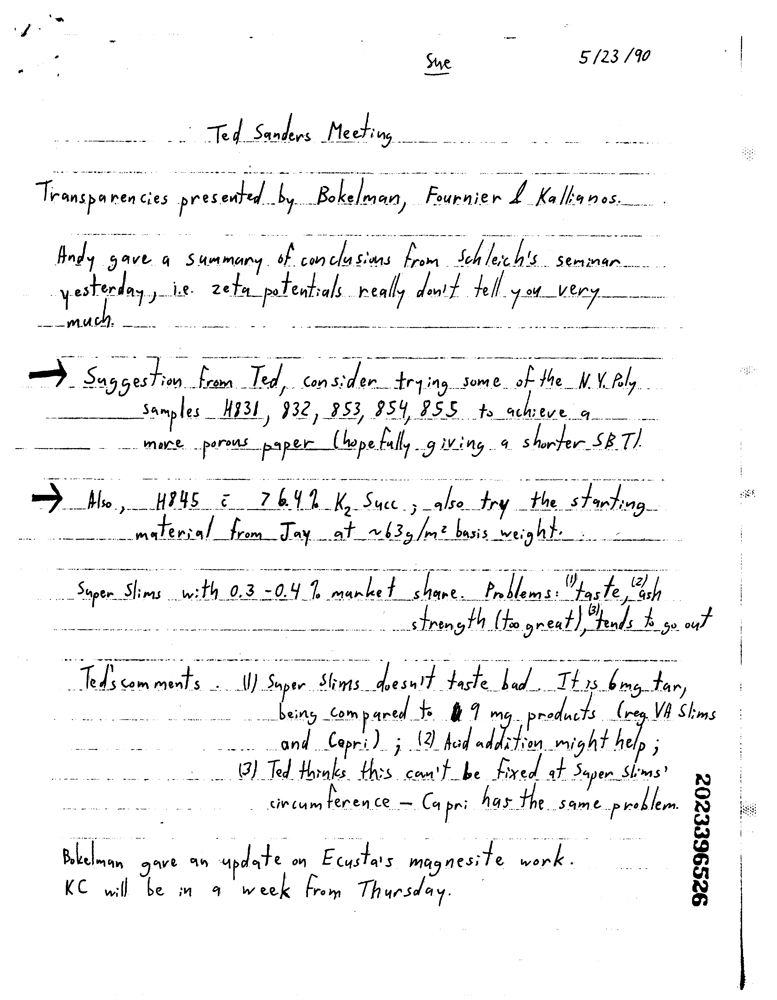 Sue
5/23/90
Ted Sanders Meeting
Transparencies presented by Bokelman, Fournier & Kallianos.
Andy gave a summary of conclusions from Schleich's seminar
yesterday, i.e. zeta potentials really don't tell you very
much.
→ Suggestion from Ted, consider trying some of the N.Y. Poly
samples H831, 832, 853, 854, 855 to achieve a
more porous paper (hopefully giving a shorter SBT).
→ Also, H845 c̄ 76.4% K2 Succ; also try the starting
material from Jay at ~63g/m² basis weight.
Super Slims with 0.3-0.4% market share. Problems: (1) taste, (2) ash
strength (too great), (3) tends to go out
Ted's comments. (1) Super Slims doesn't taste bad. It is 6mg tar,
being compared to 9 mg products (reg VA Slims
and Capri); (2) Acid addition might help;
(3) Ted thinks this can't be fixed at Super Slims'
circumference – Capri has the same problem.
Bokelman gave an update on Ecusta's magnesite work.
KC will be in a week from Thursday.
2023396526